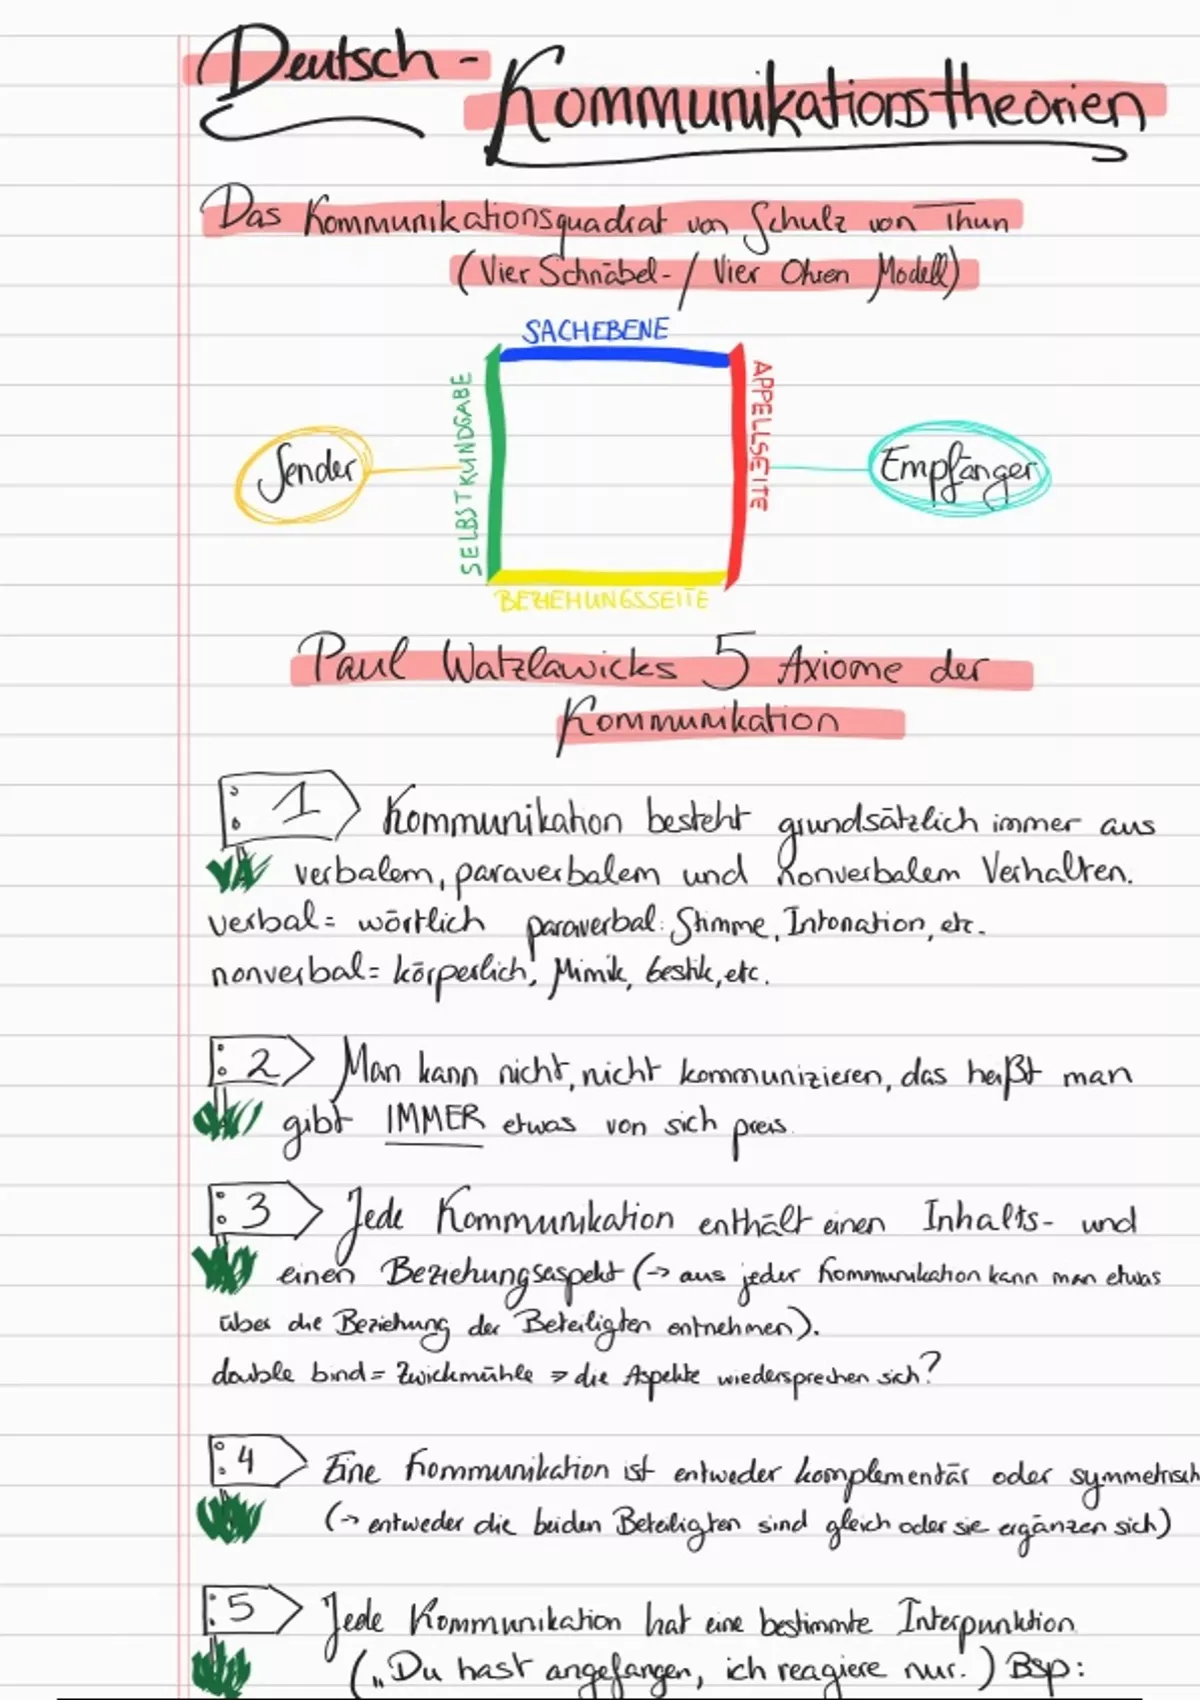 Deutsch -
Kommunikationstheorien
Das Kommunikationsquadrat von Schulz von Thun
(Vier Schnäbel- / Vier Ohren Modell)
SACHEBENE
SELBSTKUNDGABE
APPELLSEITE
Sender
Empfänger
BEZIEHUNGSSEITE
Paul Watzlawicks 5 Axiome der
Kommunikation
1 Kommunikation besteht grundsätzlich immer aus
verbalem, paraverbalem und nonverbalem Verhalten.
verbal = wörtlich paraverbal: Stimme, Intonation, etc.
nonverbal = körperlich, Mimik, Gestik, etc.
2 Man kann nicht, nicht kommunizieren, das heißt man
gibt IMMER etwas von sich preis.
3 Jede Kommunikation enthält einen Inhalts- und
einen Beziehungsaspekt (→ aus jeder Kommunikation kann man etwas
über die Beziehung der Beteiligten entnehmen).
double bind = Zwickmühle => die Aspekte wiedersprechen sich?
4 Eine Kommunikation ist entweder komplementär oder symmetrisch
(→ entweder die beiden Beteiligten sind gleich oder sie ergänzen sich)
5 Jede Kommunikation hat eine bestimmte Interpunktion
(„Du hast angefangen, ich reagiere nur.) Bsp: